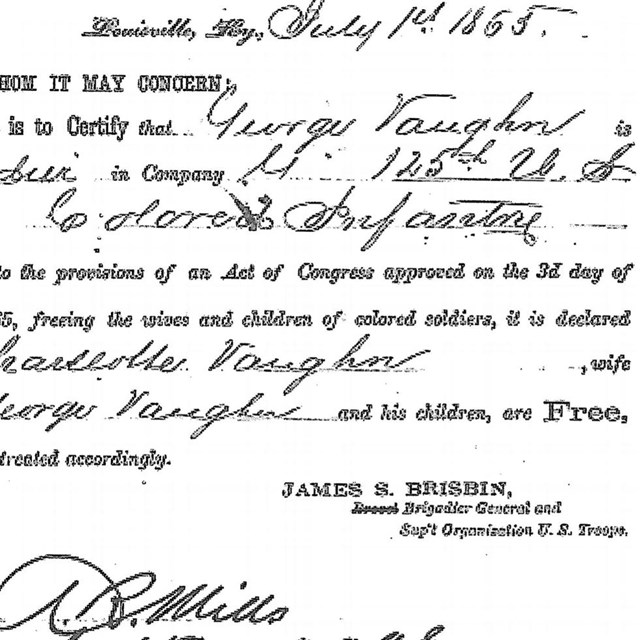 Louisville, Ky., July 1st 1865.
HOM IT MAY CONCERN:
is to Certify that George Vaughn is
in Company 125th U. S
Colored Infantry
to the provisions of an Act of Congress approved on the 3d day of
65, freeing the wives and children of colored soldiers, it is declared
harlotte Vaughn, wife
eorge Vaughn and his children, are Free,
treated accordingly.
JAMES S. BRISBIN,
Brevet Brigadier General and
Sup't Organization U. S. Troops.
A. B. Mills